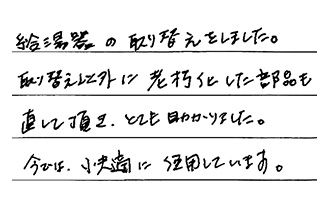 給湯器の取り替えをしました。
取り替え以外に老朽化した部品も
直して頂き、とても助かりました。
今では、快適に使用しています。